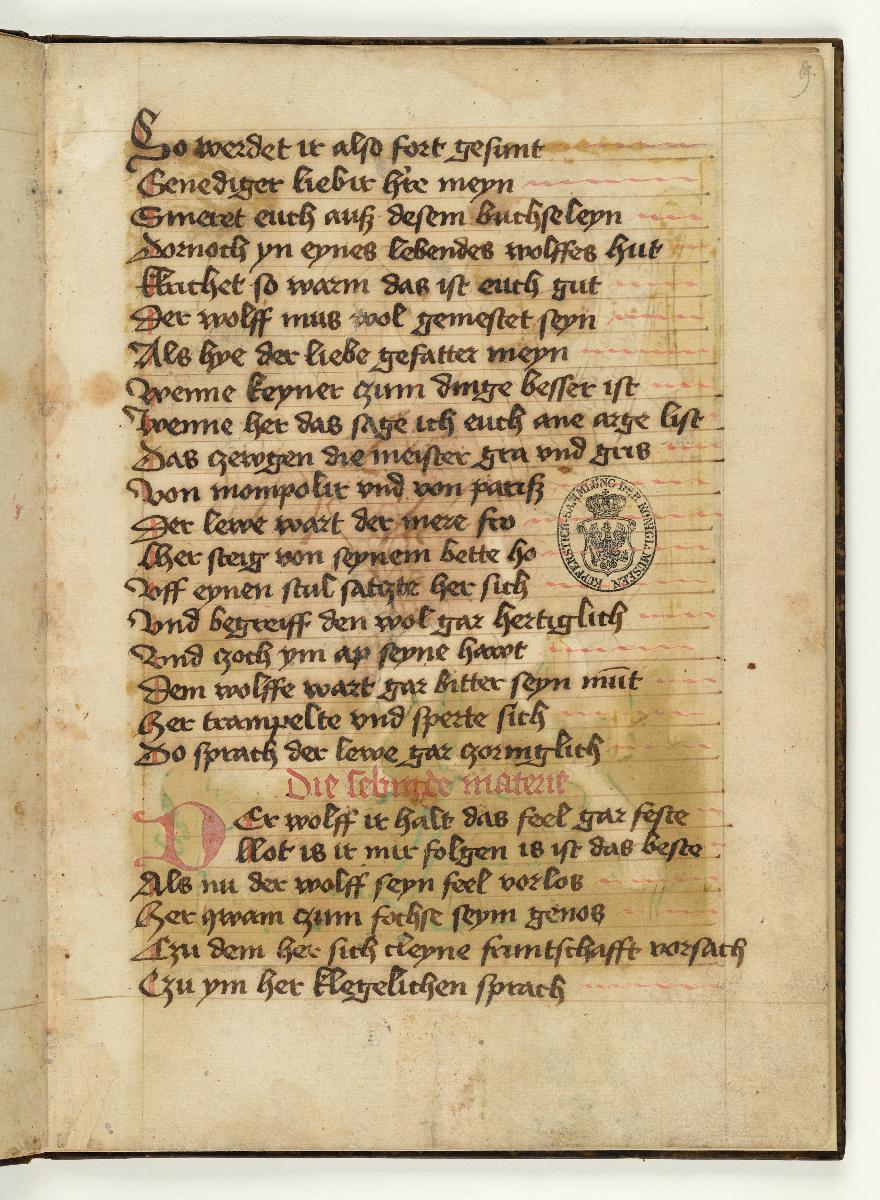 9.
So werdet ir also fort gesunt
Genediger liebir h're meyn
Smeret euch auß desem buchseleyn
Dornoch yn eynes lebendes wolffes hut
krichet so warm das ist euch gut
Der wolff mus wol gemestet seyn
Als hye der liebe gefatter meyn
Wenne keyner czum dinge besser ist
Wenne her das sage ich euch ane arge list
Das czewgen die meister gra vnd gris
Von mompolir vnd von pariß
Der lewe wart der mere fro
Her steig von seynem bette ho
Vff eynen stul satczte her sich
Vnd begreiff den wol gar hertiglich
Vnd czoch ym ap seyne hawt
Dem wolffe wart gar bitter seyn mūt
Her trampelte vnd sperte sich
Do sprach der lewe gar czorniglich
Die sebinde materie
DEr wolff ir halt das feel gar feste
Lot is ir mir folgen is ist das beste
Als nu der wolff seyn feel vorlos
Her qwam czum fochse seym genos
Czu dem her sich cleyne fruntschafft vorsach
Czu ym her klegelichen sprach
KUPFERSTICH-SAMMLUNG DER KÖNIGL. MUSEEN